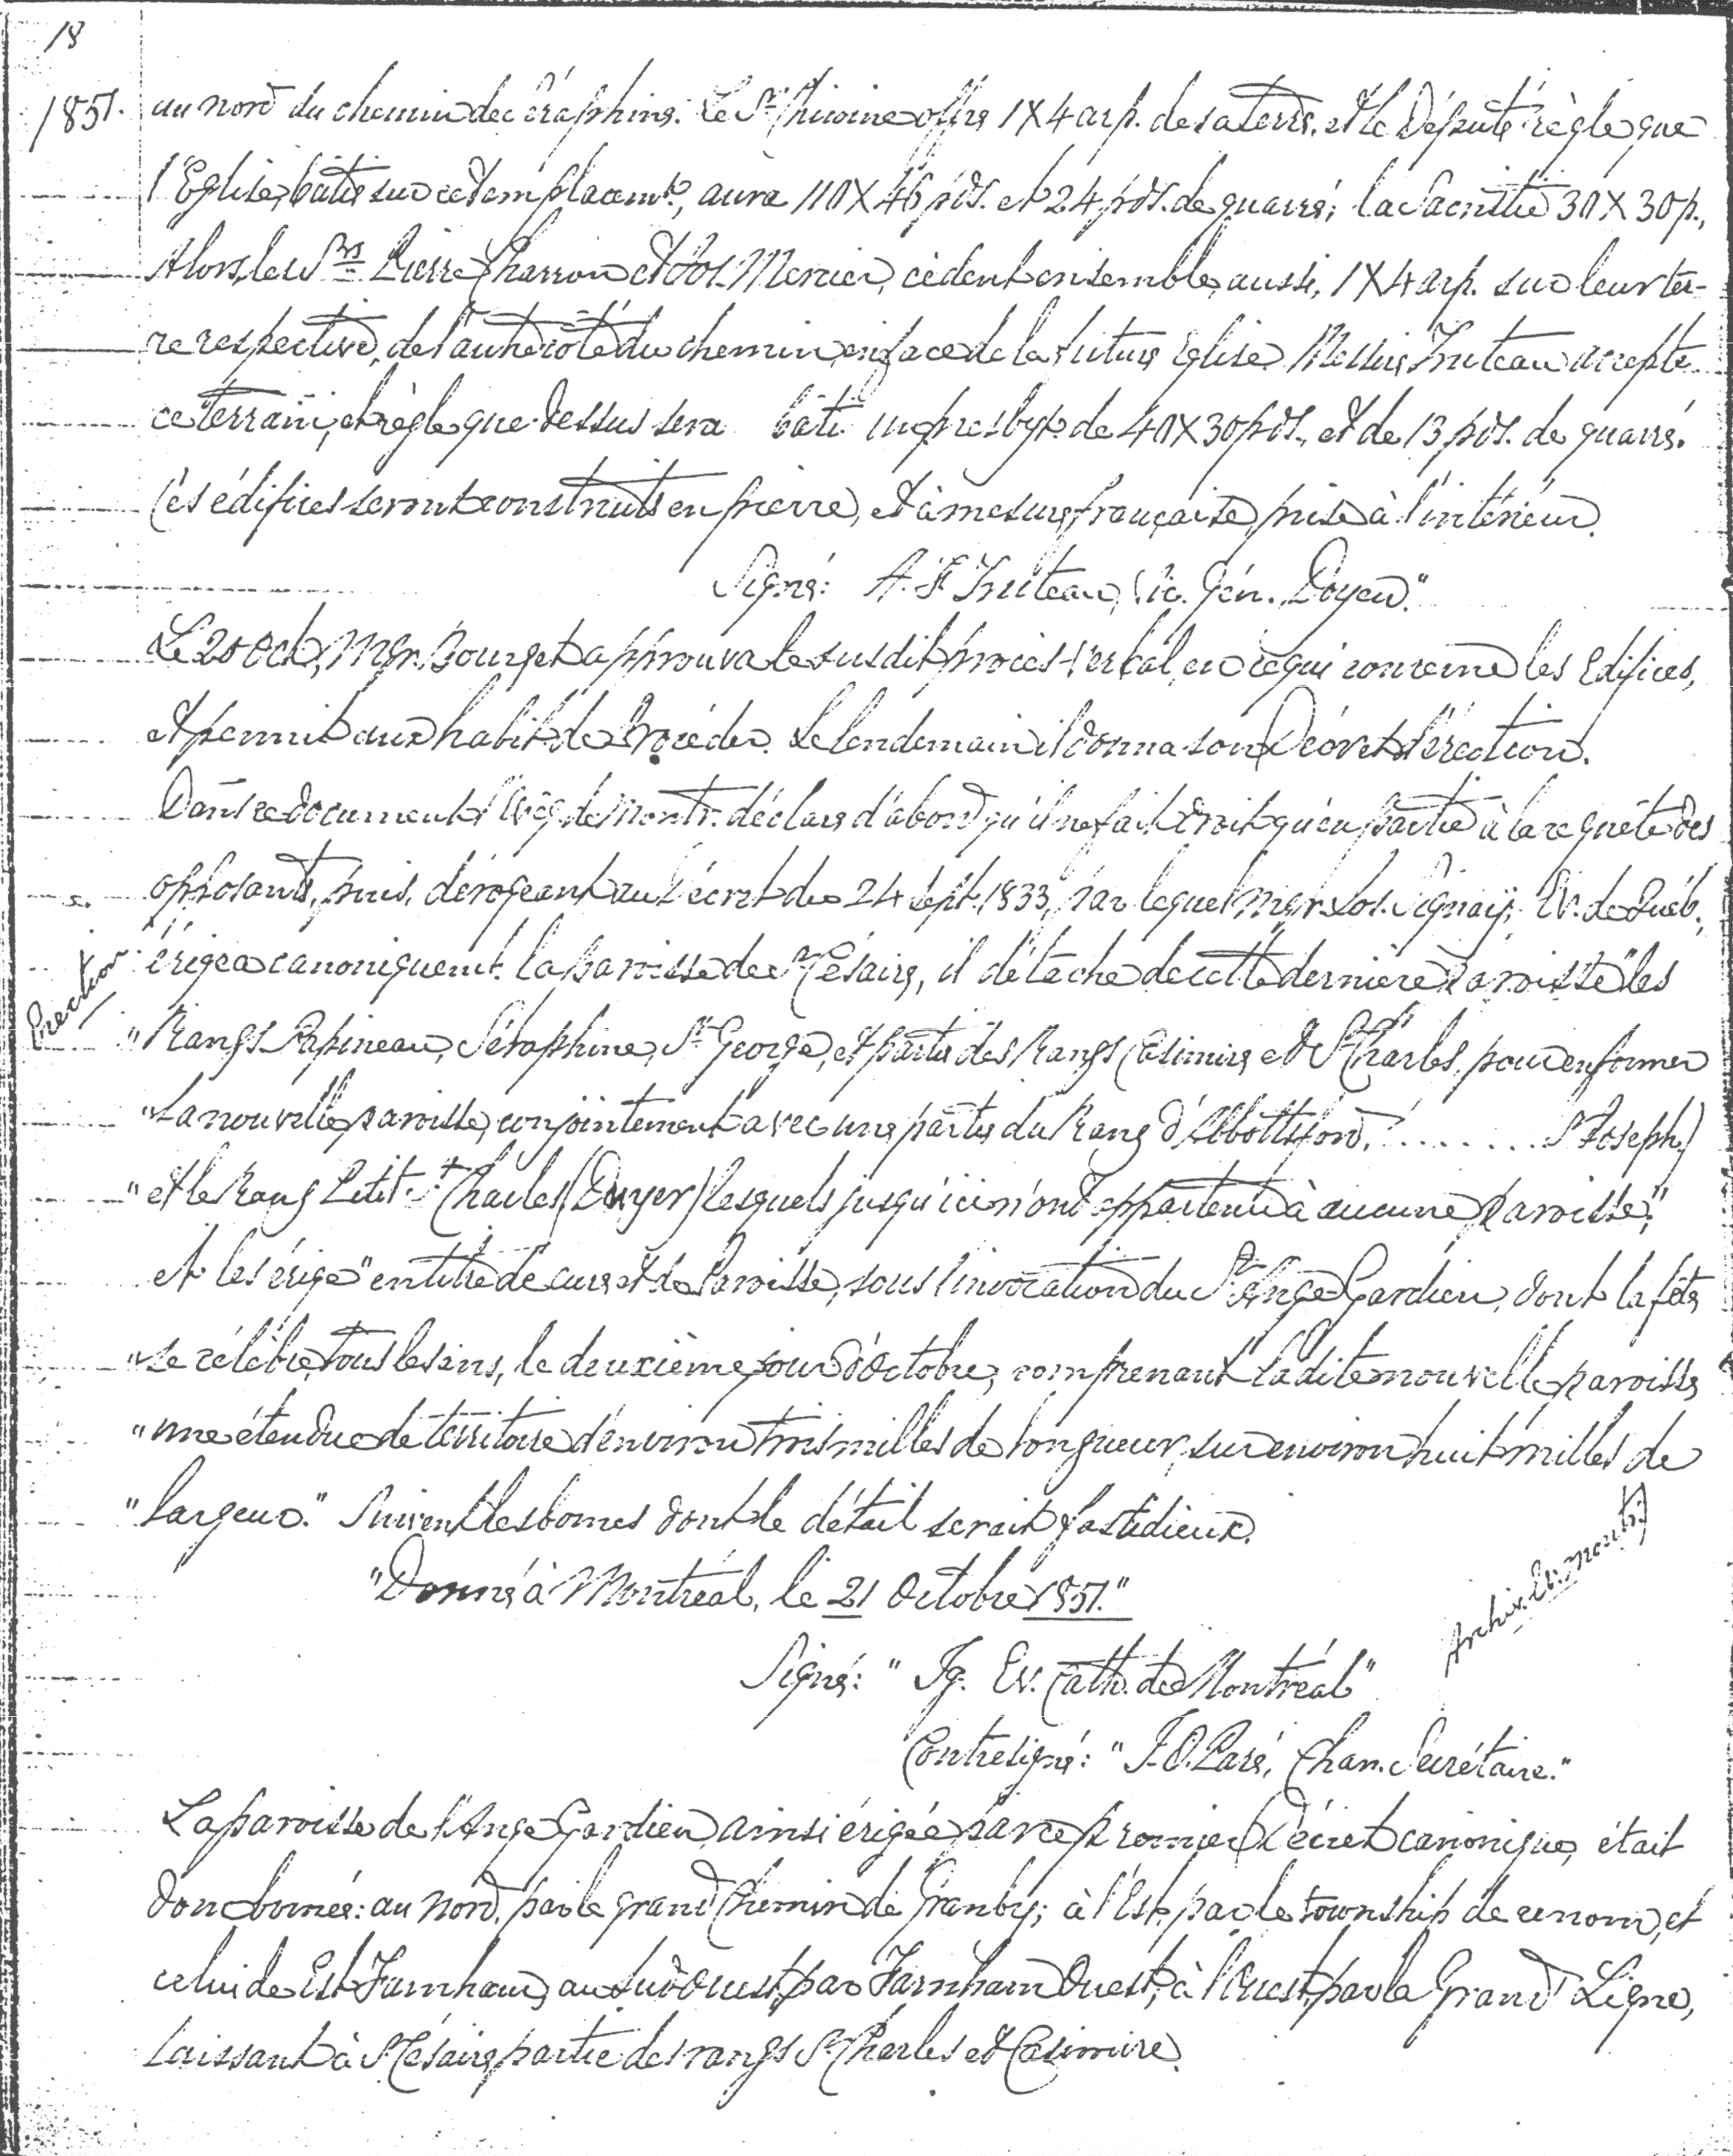 18
1851. au nord du chemin des Séraphins. Le Sr offre 1 X 4 arp. de sa terre, et le Député règle que
l'Eglise, bâtie sur cet emplacemt, aura 110 X 46 pds. et 24 pds. de quarré; la Sacristie 30 X 30 p.,
Alors, les Srs Pierre Charron et Jos. Mercier, cèdent ensemble, aussi, 1 X 4 arp. sur leur ter-
re respective, de l'autre côté du chemin, en face de la future Eglise. Messire Truteau accepte
ce terrain, et règle que dessus sera bâti un presbyt. de 40 X 30 pds., et de 13 pds. de quarré.
Ces édifices seront construits en pierre, et à mesure française, prise à l'intérieur.
Signé: A. F. Truteau, Vic. Gén. Doyen."
Le 20 Oct., Mgr. Bourget approuva le susdit procès-verbal, en ce qui concerne les Edifices,
et permit aux habit. de procéder. Le lendemain il donna son Décret d'érection.
Dans ce document l'Evêq. de Montr. déclare d'abord qu'il ne fait droit qu'en partie à la requête des
opposants, puis, dérogeant au Décret du 24 Sept. 1833, par lequel Mgr. Jos. Signaÿ, Ev. de Québ.,
érigea canoniquemt. la paroisse de St Césaire, il détache de cette dernière paroisse "les
Erection
" Rangs Papineau, Séraphine, St George, et partie des Rangs Casimire et St Charles, pour en former
" la nouvelle paroisse, conjointement avec une partie du Rang d'Abbottsford, ........ St Joseph)
" et le Rang Petit St Charles (Dwyer) lesquels jusqu'ici n'ont appartenu à aucune paroisse,"
et les érige "en titre de cure et de Paroisse, sous l'invocation du St Ange Gardien, dont la fête
" se célèbre, tous les ans, le deuxième jour d'Octobre, comprenant la dite nouvelle paroisse
" une étendue de territoire d'environ trois milles de longueur, sur environ huit milles de
" largeur." Suivent les bornes dont le détail serait fastidieux.
"Donné à Montréal, le 21 Octobre 1851."
Archiv. Ev. Montr.
Signé: "Ig. Ev. Cath. de Montréal"
Contresigné: "J. O. Paré, Chan. Secrétaire."
La paroisse de l'Ange Gardien, ainsi érigée par ce premier Décret canonique, était
donc bornée: au Nord, par le grand Chemin de Granby; à l'Est, par le township de ce nom, et
celui de Est Farnham, au Sud Ouest, par Farnham Ouest, à l'Ouest, par la Grand Ligne,
laissant à St Césaire, partie des rangs St Charles et Casimire.